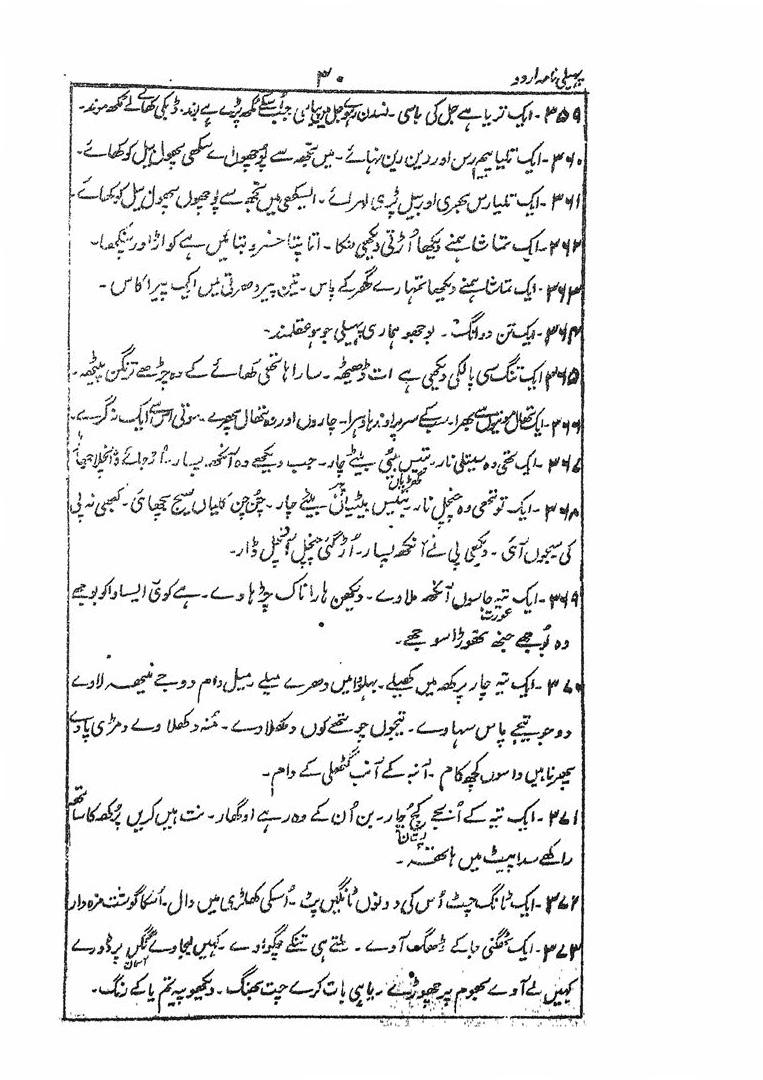 پہیلی نامہ اردو ۳۰
۳۵۹۔ ایک تریا ہے جل کی باسی۔ نسدن رہے جل میں پیاسی جب اسکے مکھ پڑے ہے بند۔ ڈبکی کھائے لے مکھ موند۔
۳۶۰۔ ایک تلیا پیم رس اور دین رین نہائے۔ میں تجھ سے پوچھوں اے سکھی پھول بیل کو کھائے۔
۳۶۱۔ ایک تلیا رس بھری اور بیل پڑی لہرائے۔ اے سکھی میں تجھ سے پوچھوں پھول بیل کو کھائے۔
۳۶۲۔ ایک تماشا ہمنے دیکھا اُڑتی دیکھی دنکا۔ اتا پتا خسرو بتائیں ہے کواڑا اور پنکھا۔
۳۶۳۔ ایک تماشا ہمنے دیکھا تمہارے گھر کے پاس۔ تین پیر دھرتی میں ایک پیر اکاس۔
۳۶۴۔ ایک تن دو انگ۔ بوجھو ہماری پہیلی جو ہو عقلمند۔
۳۶۵۔ ایک تنگ سی پالکی دیکھی ہے ات ڈھیٹھ۔ سارا ہاتھی کھائے کے وہ چڑھے ترنگن پیٹھ۔
۳۶۶۔ ایک تھال موتیوں سے بھرا۔ سب کے سر پر اوندہا دہرا۔ چاروں اور وہ تھال پھرے۔ موتی اس سے ایک نہ گرے۔
۳۶۷۔ ایک تھی وہ سیتلی نار۔ تیتس بیٹی بیٹے چار۔ جب دیکھے وہ آنکھ پسار۔ اُڑ جائے
۳۶۸۔ ایک تو تھی وہ چنچل نار۔ بیٹیاں بیٹے چار۔ چن چن کلیاں سیج بچھائی۔ کبھی نہ پی
کی سیجوں آئی۔ دیکھی پی نے آنکھ پسار۔ اُڑ گئی چنچل آنچل ڈار۔
۳۶۹۔ ایک تیہ جاسوں آنکھ ملاوے۔ دیکھن ہارا ناک چڑہاوے۔ ہے کوئی ایسا واکو بوجھے
عورت
وہ بوجھے جنھ تھوڑا سوجھے۔
۳۷۰۔ ایک تیہ چار پرکھ میں کھیلے۔ پہلو میں دھرے میلے دام دوجے لاوے
دوجو تیجے پاس سہاوے۔ تیجوں چوتھے کوں دکھلاوے۔ منہ دکھلاوے دمڑی پاوے
پھر ناہیں واسوں کچھ کام۔ آنبہ کے آنب گٹھلی کے دام۔
۳۷۱۔ ایک تیہ کے اُنچے کچ چار۔ بن اُن کے وہ رہے اوگھار۔ نت ہیں کریں پرکھ کا ساتھ
پستان
راکھے سدا پیٹ میں ہاتھ۔
۳۷۲۔ ایک ٹانگ چٹ اُس کی دونوں ٹانگیں پٹ۔ اُسکی کھاڑی میں دال۔ اُسکا گوشت مزہ دار
۳۷۳۔ ایک ٹھگنی جا کے ڈھگ آوے۔ ملتے ہی تنکے چپکاوے۔ کہیں لیجاوے گگن پر ڈورے
آسمان
کہیں لے آوے بھوم پر چھوڑے۔ یاہی بات کرے چت بھنگ۔ دیکھو پیتم یا کے رنگ۔